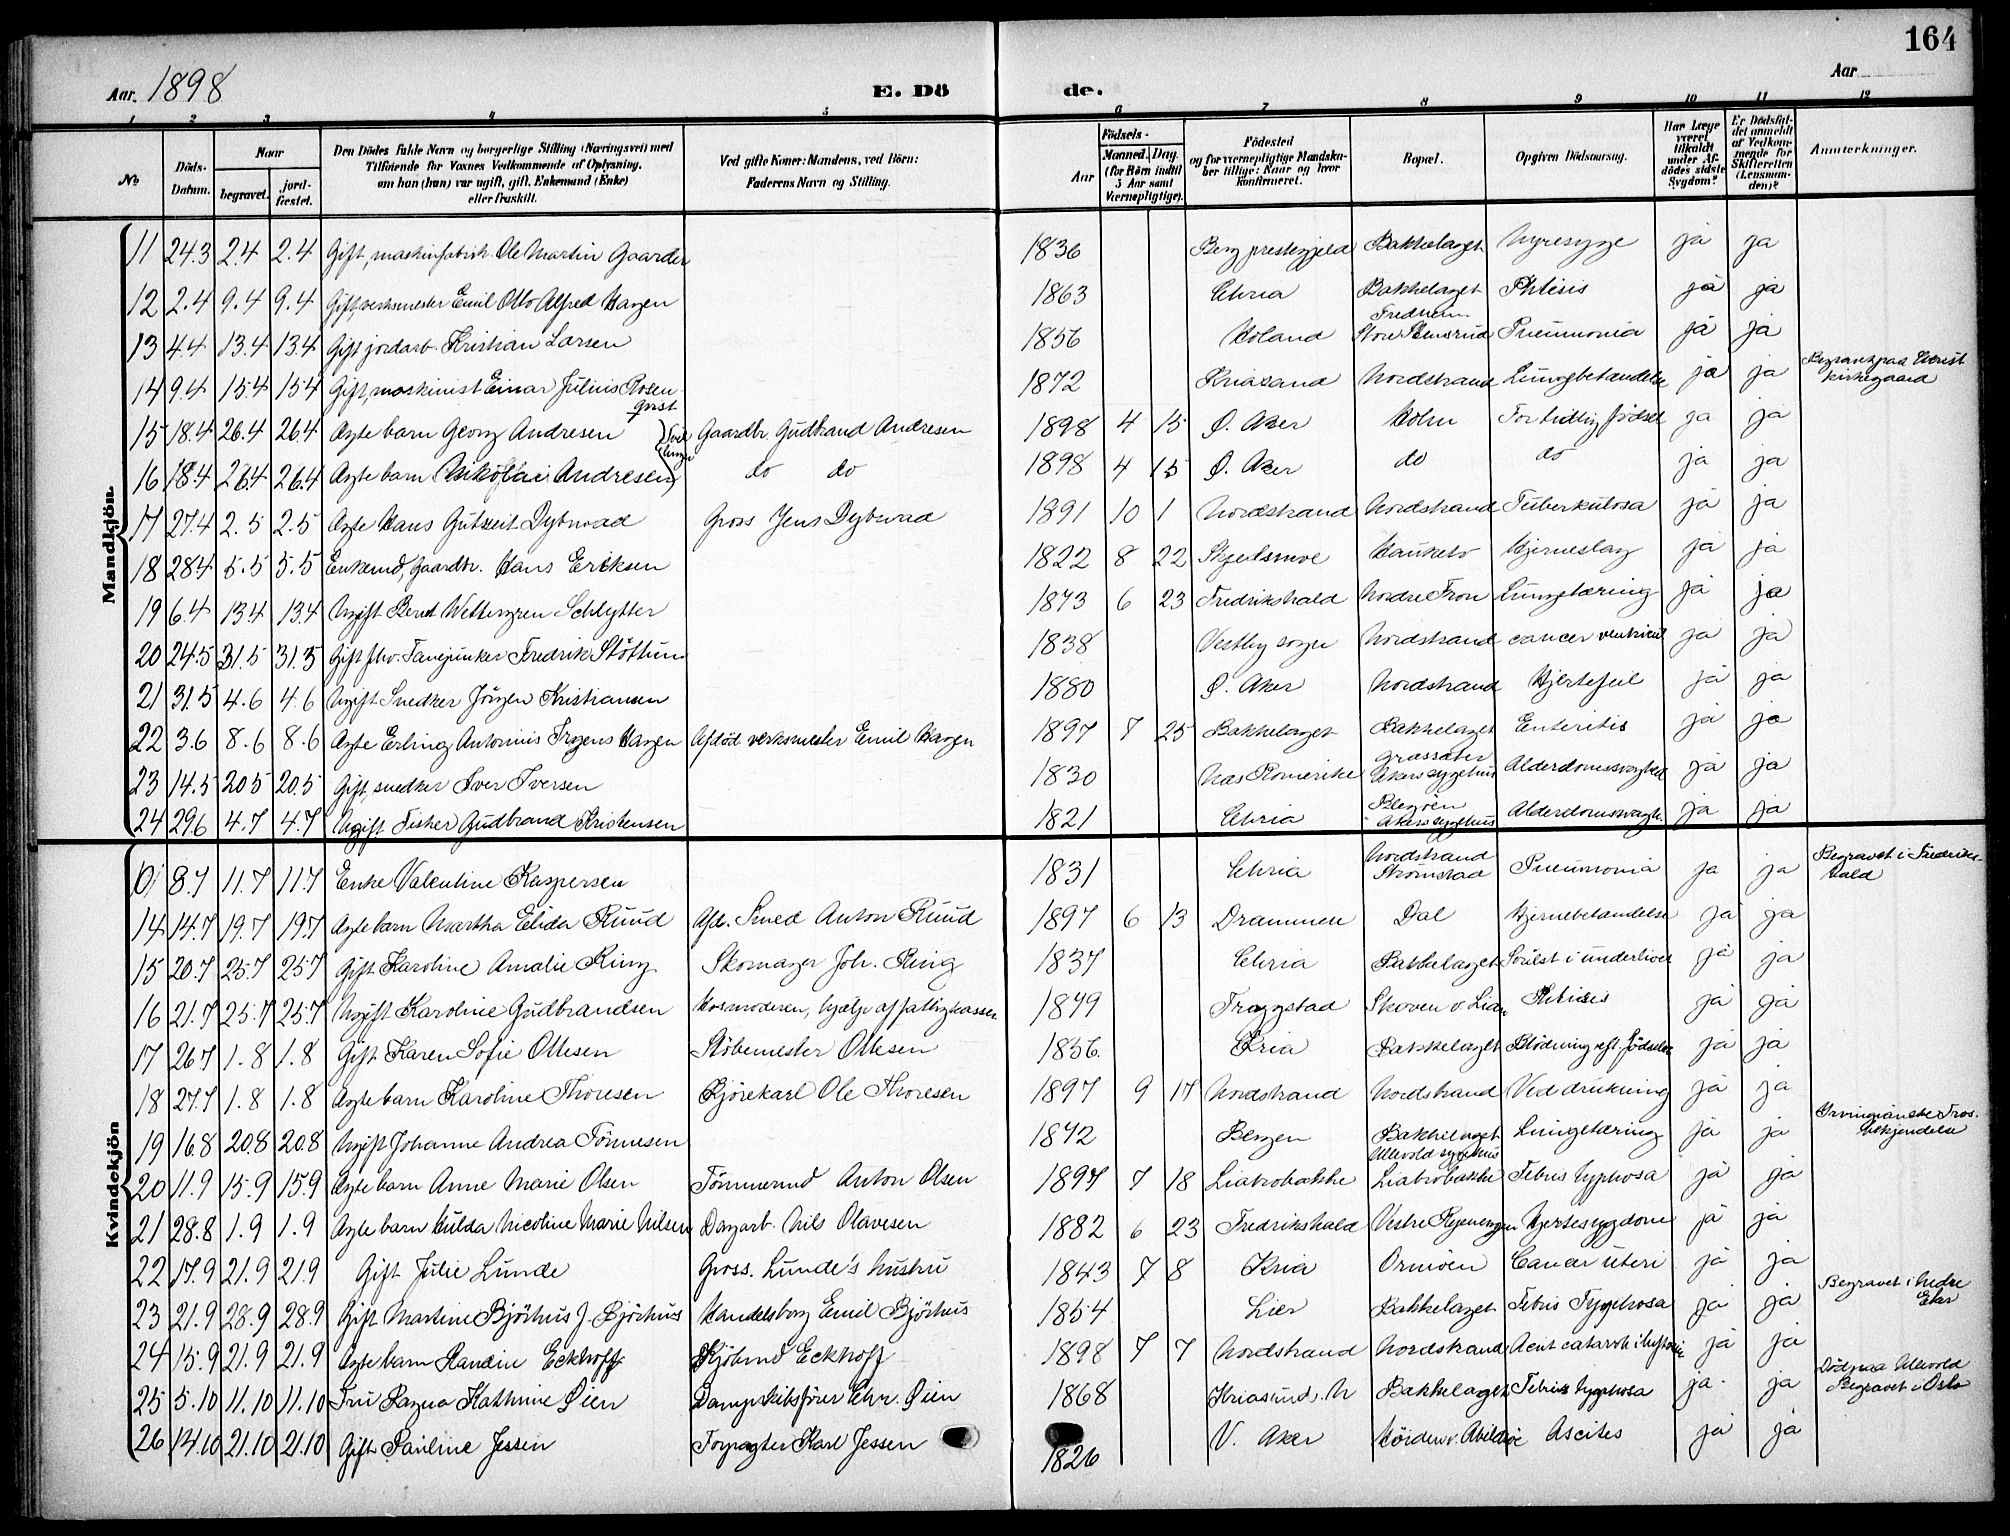 164
Aar. 1898
E. Dö
de.
Aar
1 2 3 4 5 6 7 8 9 10 11 12
No
Döds-Datum.
Naar
begravet.
jord-fæstet.
Den Dödes fulde Navn og borgerlige Stilling (Næringsvei) med
Tilföiende for Voxnes Vedkommende af Oplysning,
om han (hun) var ugift, gift, Enkemand (Enke)
eller fraskilt.
Ved gifte Koner: Mandens, ved Börn:
Faderens Navn og Stilling.
Födsels-
Aar
Maaned. Dag.
(for Börn indtil
5 Aar samt
Værnepligtige).
Födested
og for værnepligtige Mandska-
ber tillige: Naar og hvor
konfirmeret.
Bopæl.
Opgiven Dödsaarsag.
Har Læge
været
tilkaldt
under Af-
dödes sidste
Sygdom?
Er Dödsfal-
det anmeldt
af Vedkom-
mende for
Skifteretten
(Lensman-
den)?
Anmerkninger.
Mandkjön.
11 24.3 2.4 2.4 Gift, maskinfabrik. Ole Martin Gaarder 1836 Berg prestegjeld Bækkelaget Nyresyge ja ja
12 2.4 9.4 9.4 Gift, verksmester Emil Otto Alfred Hagen 1863 Chria Bækkelaget Phtisis ja ja
13 4.4 13.4 13.4 Gift jordarb. Kristian Larsen 1856 Höland Fredheim Store Stensrud Pneumonia ja ja
14 9.4 15.4 15.4 Gift, maskinist Einar Julius Rosenqvist 1872 Kriasand Nordstrand Lungebetændelse ja ja Begravet paa kirkegaard
15 18.4 26.4 26.4 Ægte barn Georg Andresen Gaardbr. Gudbrand Andresen 1898 4 15 Ø. Aker Holm For tidlig födsel ja ja
16 18.4 26.4 26.4 Ægte barn Nikolai Andresen do do 1898 4 15 Ø. Aker do do ja ja
17 27.4 2.5 2.5 Ægte Hans Gutzeit Dybwad Gross Jens Dybwad 1891 10 1 Nordstrand Nordstrand Tuberkulosa ja ja
18 28.4 5.5 5.5 Enkemd, Gaardbr. Hans Eriksen 1822 8 22 Skjedsmoe Hauketo Hjerneslag ja ja
19 6.4 13.4 13.4 Ugift Bernt Wettergren Schlytter 1873 6 23 Fredrikshald Nordre Fron Lungetæring ja ja
20 24.5 31.5 31.5 Gift Fanejunker Fredrik Stöttum 1838 Vestby sogn Nordstrand cancer ventricul ja ja
21 31.5 4.6 4.6 Ugift Snedker Jörgen Kristiansen 1880 Ø. Aker Nordstrand Hjertefeil ja ja
22 3.6 8.6 8.6 Ægte Erling Antonius Trygens Hagen Afdöd verksmester Emil Hagen 1897 7 25 Bækkelaget Bækkelaget Enteritis ja ja
23 14.5 20.5 20.5 Gift, snedker Iver Iversen 1830 Næs Romerike Akers sygehus Alderdomssvaghed ja ja
24 29.6 4.7 4.7 Ugift Fisker Gudbrand Kristensen 1821 Chria Blegöen Akers sygehus Alderdomssvagh. ja ja
Kvindekjön
8.7 11.7 11.7 Enke Valentine Kaspersen 1831 Chria Nordstrand Strömstad Pneumonia ja ja Begravet i Frederikshald
14 14.7 19.7 19.7 Ægte barn Martha Elida Ruud Afd. Smed Anton Ruud 1897 6 13 Drammen Dal Hjernebetændelse ja ja
15 20.7 25.7 25.7 Gift Karoline Amalie Ring Skomager Joh. Ring 1837 Chria Bækkelaget Svulst i underlivet ja ja
16 21.7 25.7 25.7 Ugift Karoline Gudbrandsen Hos moderen, hjælp af fattigkassen 1879 Trøgstad Skoven v. Lian Phtisis ja ja
17 26.7 1.8 1.8 Gift Karen Sofie Ottesen Stöbemester Ottesen 1856 Kria Bækkelaget Blödning eft. födselen ja ja
18 27.7 1.8 1.8 Ægte barn Karoline Thoresen Kjörekarl Ole Thoresen 1897 9 17 Nordstrand Nordstrand Ved drukning ja ja
19 16.8 20.8 20.8 Ugift Johanne Andrea Tönnesen 1872 Bergen Bækkelaget Ullevold sygehus Lungetæring ja ja Irvingianske Trosbekjendelse
20 11.9 15.9 15.9 Ægte barn Anne Marie Olsen Tömmermd Anton Olsen 1897 7 18 Liabrobakke Liabrobakke Febris typhosa ja ja
21 28.8 1.9 1.9 Ægte barn Hulda Nicoline Marie Nilsen Dagarb. Nils Olavesen 1882 6 23 Fredrikshald Vestre Hjertesygdom ja ja
22 17.9 21.9 21.9 Gift Julie Lunde Gross. Lunde's hustru 1843 7 8 Kria Ormöen Cancer uteri ja ja
23 21.9 28.9 28.9 Gift Martine Björhus f. Björhus Handelsborg Emil Björhus 1854 Lier Bækkelaget Febris Typhosa ja ja Begravet i Nedre Eker
24 15.9 21.9 21.9 Ægte barn Eckhoff Kjöbmd Eckhoff 1898 7 7 Nordstrand Nordstrand Acut catarrh i luftveie ja ja
25 5.10 11.10 11.10 Fru Ragna Kathrine Øien Dampskibsförer Chr. Øien 1868 Kriasund. N Bækkelaget Febris typhosa ja ja Död paa Ullevold Begravet i Oslo
26 14.10 21.10 21.10 Gift Pauline Jessen Forpagter Karl Jessen 1826 V. Aker Ascites ja ja